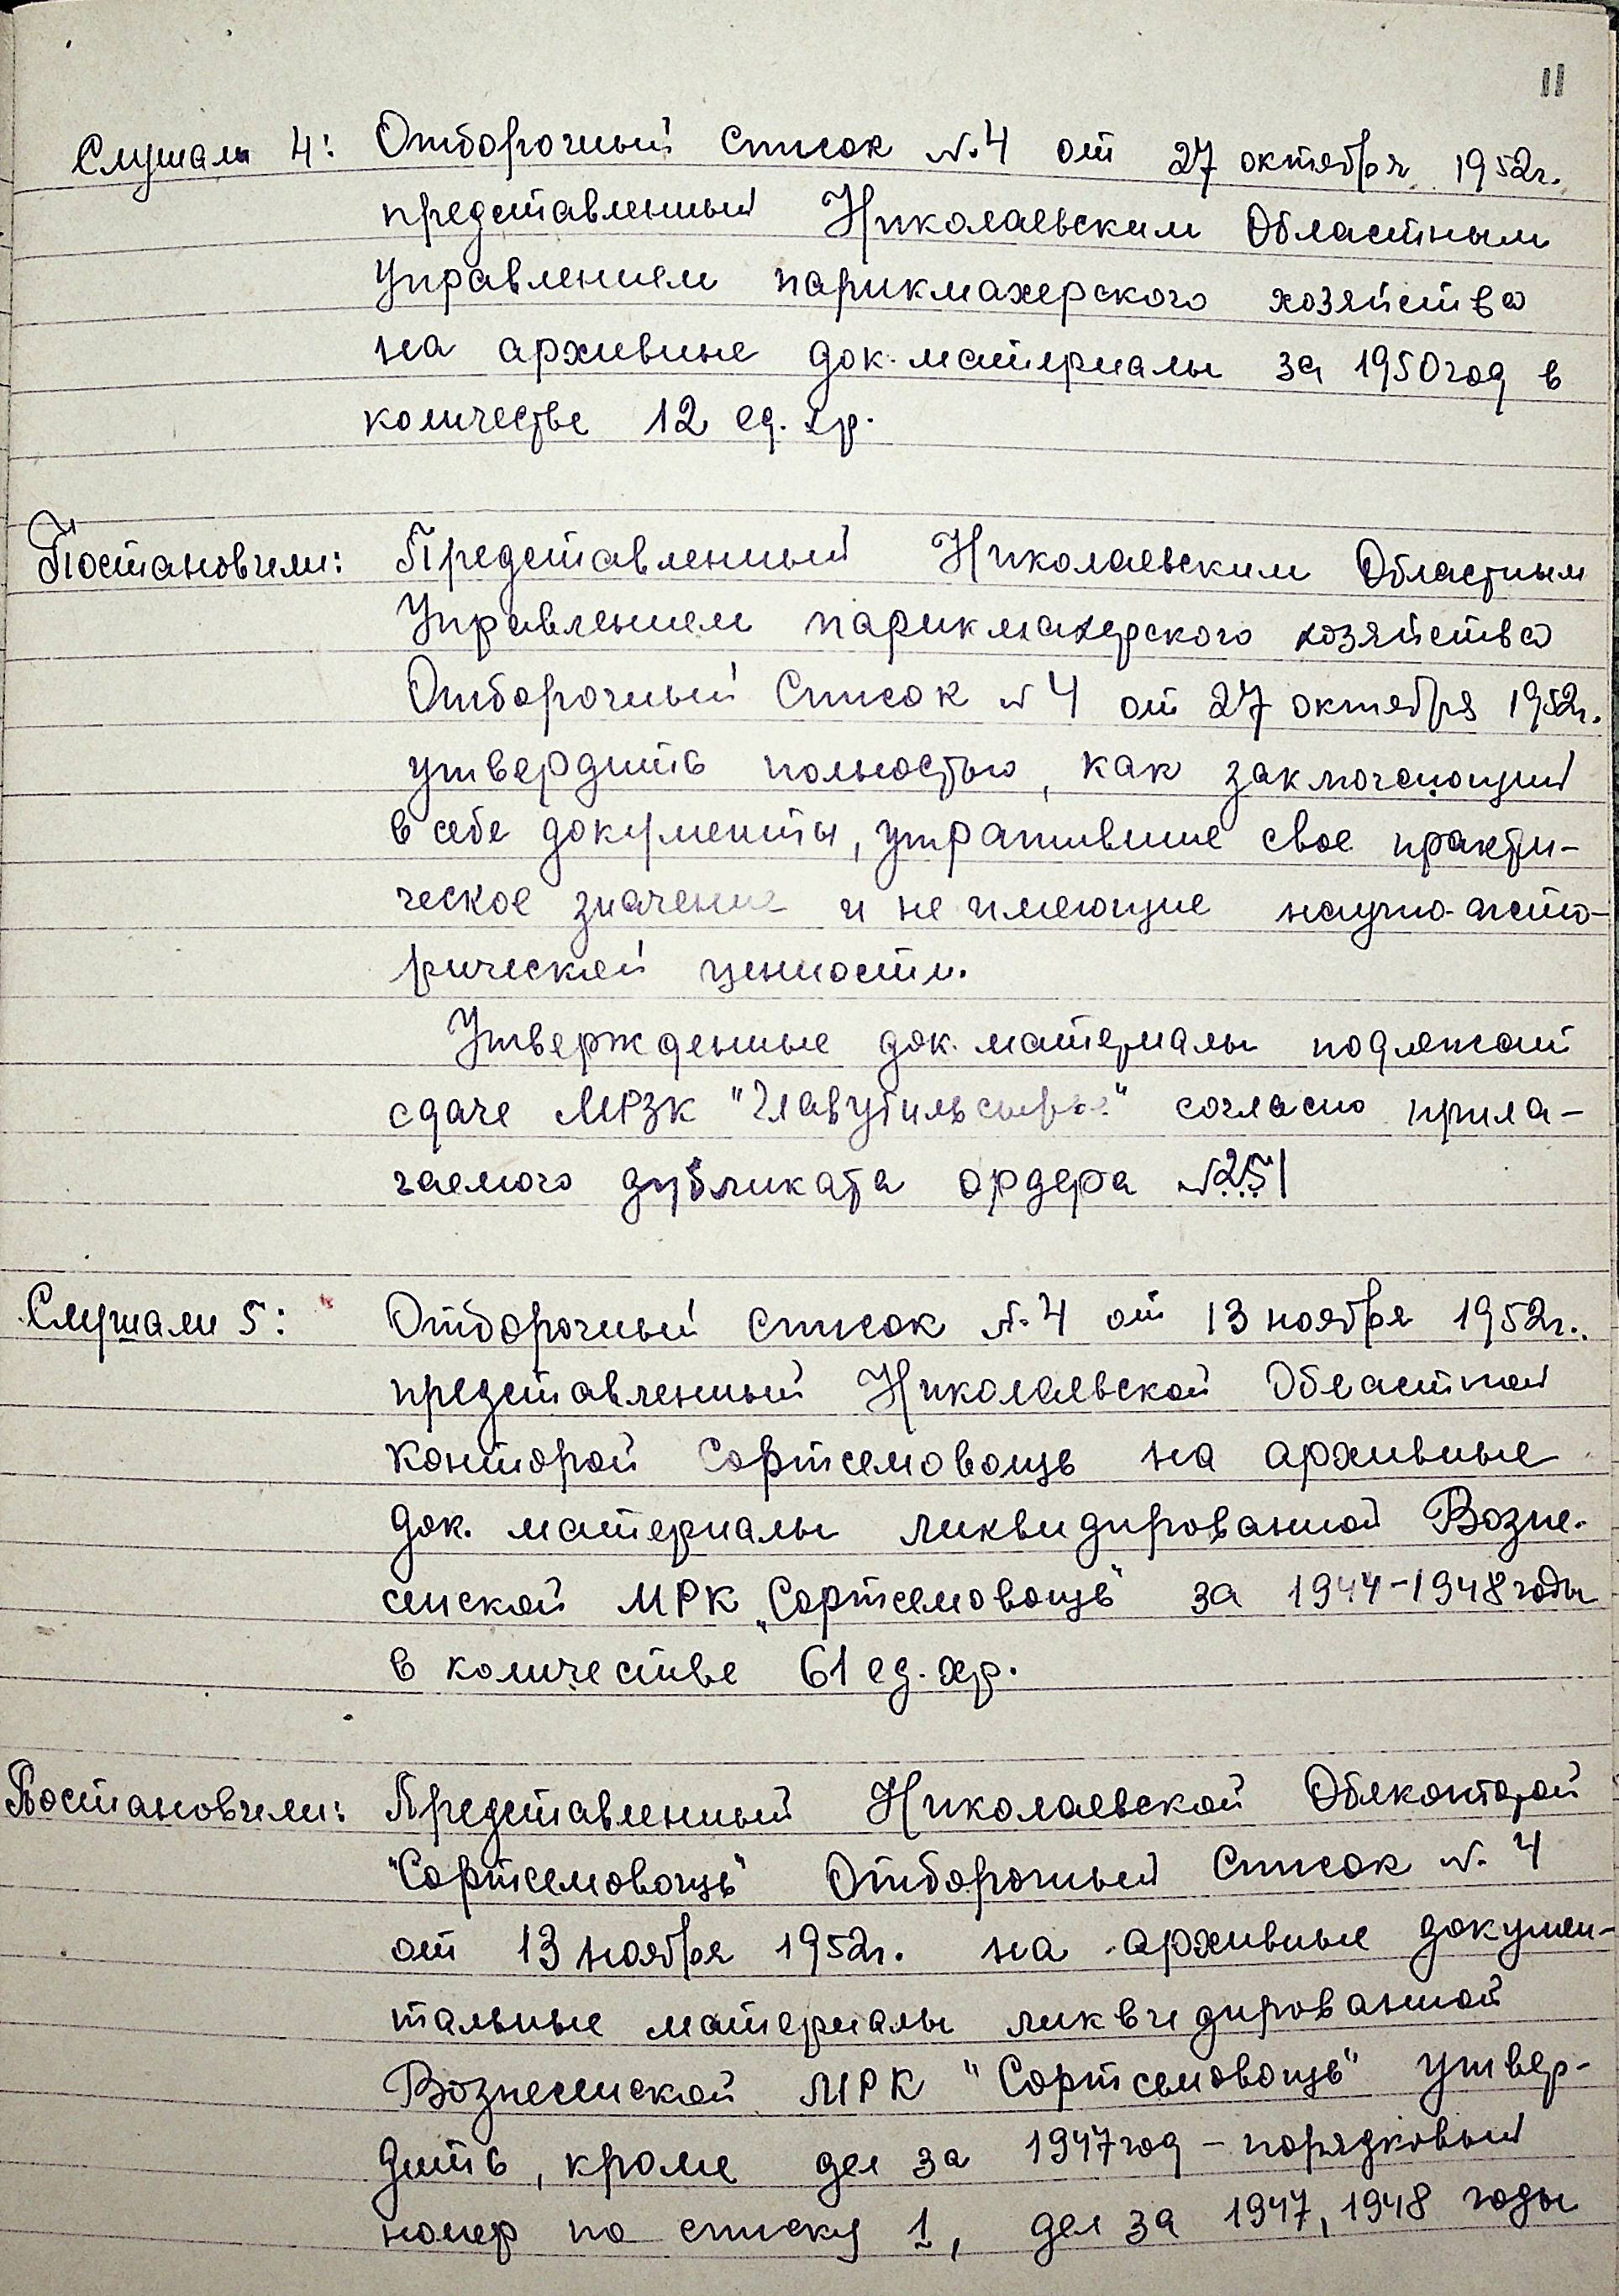 11
Слушали 4: Отборочный список №4 от 27 октября 1952г.
представленный Николаевским Областным
Управлением парикмахерского хозяйства
на архивные док. материалы за 1950 год в
количестве 12 ед. хр.
Постановили: Представленный Николаевским Областным
Управлением парикмахерского хозяйства
Отборочный Список №4 от 27 октября 1952г.
утвердить полностью, как заключающий
в себе документы, утратившие свое практи-
ческое значение и не имеющие научно-исто-
рической ценности.
Утвержденные док. материалы подлежат
сдаче МРЗК "Главутильсырье" согласно прила-
гаемого дубликата ордера №251
Слушали 5: Отборочный список №4 от 13 ноября 1952г.
представленный Николаевской Областной
конторой Сортсемовощь на архивные
док. материалы ликвидированной Возне-
сенской МРК "Сортсемовощь" за 1944-1948 годы
в количестве 61 ед. хр.
Постановили: Представленный Николаевской Облконторой
"Сортсемовощь" Отборочный Список №4
от 13 ноября 1952г. на архивные докумен-
тальные материалы ликвидированной
Вознесенской МРК "Сортсемовощь" утвер-
дить, кроме дел за 1947 год - порядковый
номер по списку 1, дел за 1947, 1948 годы